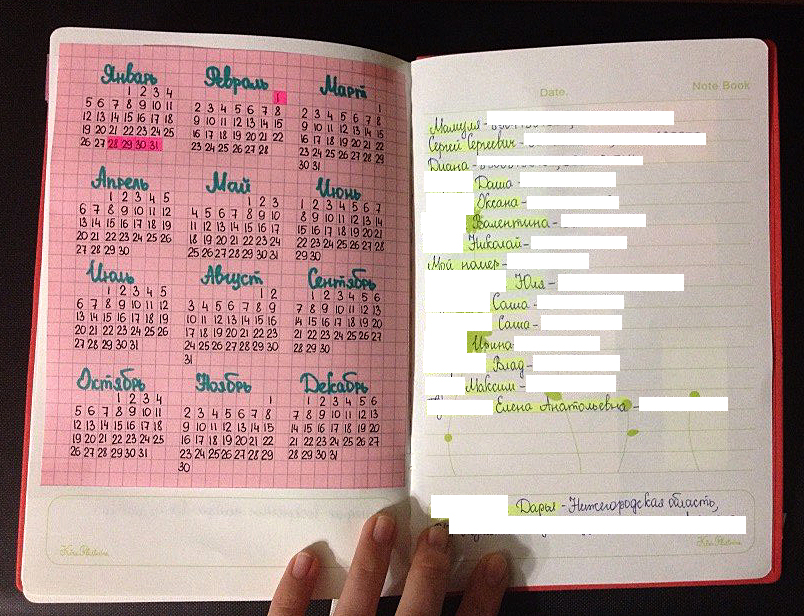 Январь
1 2 3 4
5 6 7 8 9 10 11
12 13 14 15 16 17 18
19 20 21 22 23 24 25
26 27 28 29 30 31
Февраль
1
2 3 4 5 6 7 8
9 10 11 12 13 14 15
16 17 18 19 20 21 22
23 24 25 26 27 28
Март
1
2 3 4 5 6 7 8
9 10 11 12 13 14 15
16 17 18 19 20 21 22
23 24 25 26 27 28 29
30 31
Апрель
1 2 3 4 5
6 7 8 9 10 11 12
13 14 15 16 17 18 19
20 21 22 23 24 25 26
27 28 29 30
Май
1 2 3
4 5 6 7 8 9 10
11 12 13 14 15 16 17
18 19 20 21 22 23 24
25 26 27 28 29 30 31
Июнь
1 2 3 4 5 6 7
8 9 10 11 12 13 14
15 16 17 18 19 20 21
22 23 24 25 26 27 28
29 30
Июль
1 2 3 4 5
6 7 8 9 10 11 12
13 14 15 16 17 18 19
20 21 22 23 24 25 26
27 28 29 30 31
Август
1 2
3 4 5 6 7 8 9
10 11 12 13 14 15 16
17 18 19 20 21 22 23
24 25 26 27 28 29 30
31
Сентябрь
1 2 3 4 5 6
7 8 9 10 11 12 13
14 15 16 17 18 19 20
21 22 23 24 25 26 27
28 29 30
Октябрь
1 2 3 4
5 6 7 8 9 10 11
12 13 14 15 16 17 18
19 20 21 22 23 24 25
26 27 28 29 30 31
Ноябрь
1
2 3 4 5 6 7 8
9 10 11 12 13 14 15
16 17 18 19 20 21 22
23 24 25 26 27 28 29
30
Декабрь
1 2 3 4 5 6
7 8 9 10 11 12 13
14 15 16 17 18 19 20
21 22 23 24 25 26 27
28 29 30 31
Date. Note Book
Мамуля -
Сергей Сергеевич -
Диана -
Даша -
Оксана -
Валентина -
Николай -
Мой номер -
Юля -
Саша -
Саша -
Ирина -
Влад -
Максим -
Елена Анатольевна -
Дарья - Нижегородская область,